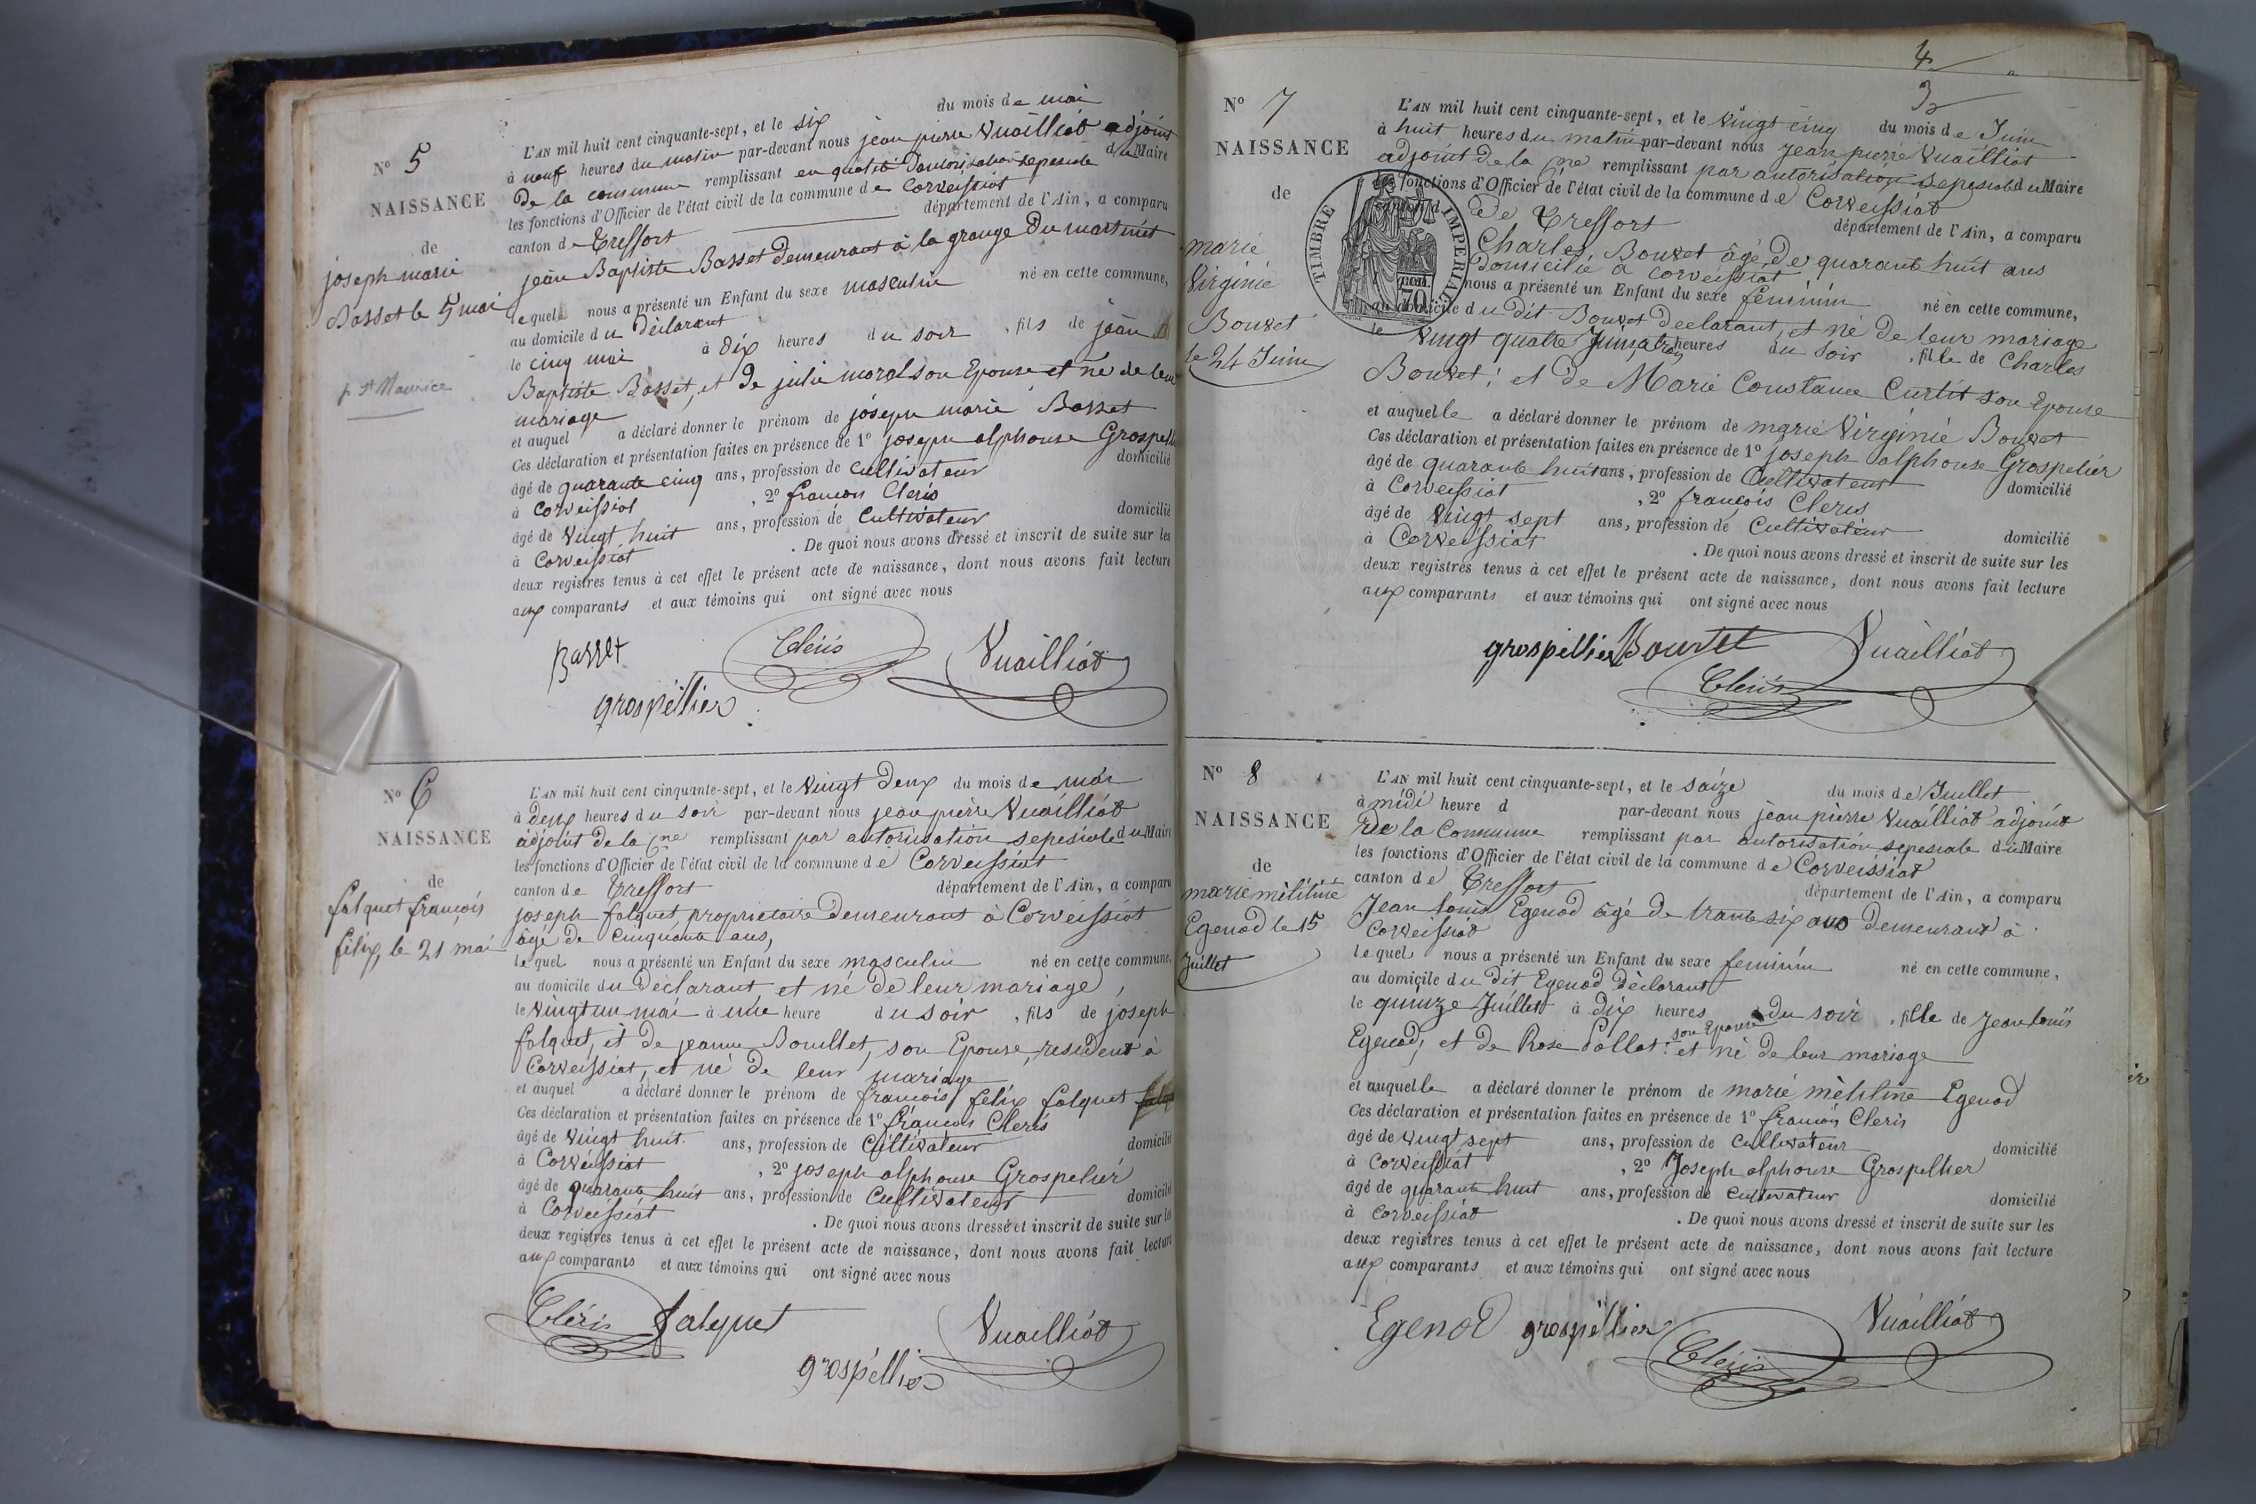 N° 5
NAISSANCE
de
joseph marie
Basset le 5 mai
p. St Maurice
L'AN mil huit cent cinquante-sept, et le six du mois de mai
à neuf heures du matin par-devant nous jean pierre Vuailliot adjoint
de la commune remplissant en qualité d'autorisation sepesiale du Maire
les fonctions d'Officier de l'état civil de la commune de Corveissiat
canton de Treffort département de l'Ain, a comparu
jean Baptiste Basset demeurant à la grange du martinet
lequel nous a présenté un Enfant du sexe masculin né en cette commune,
au domicile du déclarant
le cinq mai à dix heures du soir, fils de jean
Baptiste Basset, et de julie morel son Epouse et né de leur
mariage
et auquel a déclaré donner le prénom de joseph marie Basset
Ces déclaration et présentation faites en présence de 1° joseph alphonse Grospell
âgé de quarante cinq ans, profession de cultivateur domicilié
à Corveissiat, 2° francois Cleris
âgé de vingt huit ans, profession de Cultivateur domicilié
à Corveissiat. De quoi nous avons dressé et inscrit de suite sur les
deux registres tenus à cet effet le présent acte de naissance, dont nous avons fait lecture
aux comparants et aux témoins qui ont signé avec nous
Basset Cléris Vuailliot
grospellier
N° 6
NAISSANCE
de
falquet françois
félix, le 21 mai
L'AN mil huit cent cinquante-sept, et le vingt deux du mois de mai
à deux heures du soir par-devant nous jean pierre Vuailliot
adjoint de la Cne remplissant par autorisation sepesiale du Maire
les fonctions d'Officier de l'état civil de la commune de Corveissiat
canton de Treffort département de l'Ain, a comparu
joseph falquet, proprietaire demeurant à Corveissiat
âgé de cinquante ans,
lequel nous a présenté un Enfant du sexe masculin né en cette commune,
au domicile du déclarant, et né de leur mariage,
le vingt un mai à une heure du soir, fils de joseph
falquet, et de jeanne Bouillet, son Epouse, résident à
Corveissiat, et né de leur mariage
et auquel a déclaré donner le prénom de françois félix falquet
Ces déclaration et présentation faites en présence de 1° françois Cleris
âgé de vingt huit ans, profession de Cultivateur domicilié
à Corveissiat, 2° joseph alphonse Grospelier
âgé de quarante huit ans, profession de Cultivateur domicilié
à Corveissiat. De quoi nous avons dressé et inscrit de suite sur les
deux registres tenus à cet effet le présent acte de naissance, dont nous avons fait lecture
aux comparants et aux témoins qui ont signé avec nous
Cléris falquet Vuailliot
grospellier
4
3
N° 7
NAISSANCE
de
marie
Virginie
Bouvet
le 24 Juin
TIMBRE IMPERIAL
70
L'AN mil huit cent cinquante-sept, et le vingt cinq du mois de Juin
à huit heures du matin par-devant nous jean pierre Vuailliot
adjoint de la Cne remplissant par autorisation sepesiale du Maire
les fonctions d'Officier de l'état civil de la commune de Corveissiat
canton de Treffort département de l'Ain, a comparu
Charles Bouvet âgé de quarante huit ans
domicilié à Corveissiat
nous a présenté un Enfant du sexe féminin né en cette commune,
au domicile du dit Bouvet déclarant, et né de leur mariage
le vingt quatre Juin, à trois heures du soir, fille de Charles
Bouvet, et de Marie Constance Curtit son Epouse
et auquelle a déclaré donner le prénom de marie Virginie Bouvet
Ces déclaration et présentation faites en présence de 1° joseph alphonse Grospelier
âgé de quarante huit ans, profession de Cultivateur domicilié
à Corveissiat, 2° françois Cleris
âgé de vingt sept ans, profession de Cultivateur domicilié
à Corveissiat. De quoi nous avons dressé et inscrit de suite sur les
deux registres tenus à cet effet le présent acte de naissance, dont nous avons fait lecture
aux comparants et aux témoins qui ont signé avec nous
grospellier Bouvet Vuailliot
Cléris
N° 8
NAISSANCE
de
marie militine
Egenod le 15
Juillet
L'AN mil huit cent cinquante-sept, et le saize du mois de Juillet
à midi heure d par-devant nous jean pierre Vuailliot adjoint
de la Commune remplissant par autorisation sepesiale du Maire
les fonctions d'Officier de l'état civil de la commune de Corveissiat
canton de Treffort département de l'Ain, a comparu
Jean louis Egenod âgé de trante six ans demeurant à
Corveissiat
lequel nous a présenté un Enfant du sexe féminin né en cette commune,
au domicile du dit Egenod déclarant
le quinze Juillet à dix heures du soir, fille de Jean louis
Egenod, et de Rose Pollet son Epouse et né de leur mariage
et auquelle a déclaré donner le prénom de marie mélitine Egenod
Ces déclaration et présentation faites en présence de 1° françois Cleris
âgé de vingt sept ans, profession de Cultivateur domicilié
à Corveissiat, 2° Joseph alphonse Grospellier
âgé de quarante huit ans, profession de Cultivateur domicilié
à Corveissiat. De quoi nous avons dressé et inscrit de suite sur les
deux registres tenus à cet effet le présent acte de naissance, dont nous avons fait lecture
aux comparants et aux témoins qui ont signé avec nous
Egenod grospellier Vuailliot
Cléris